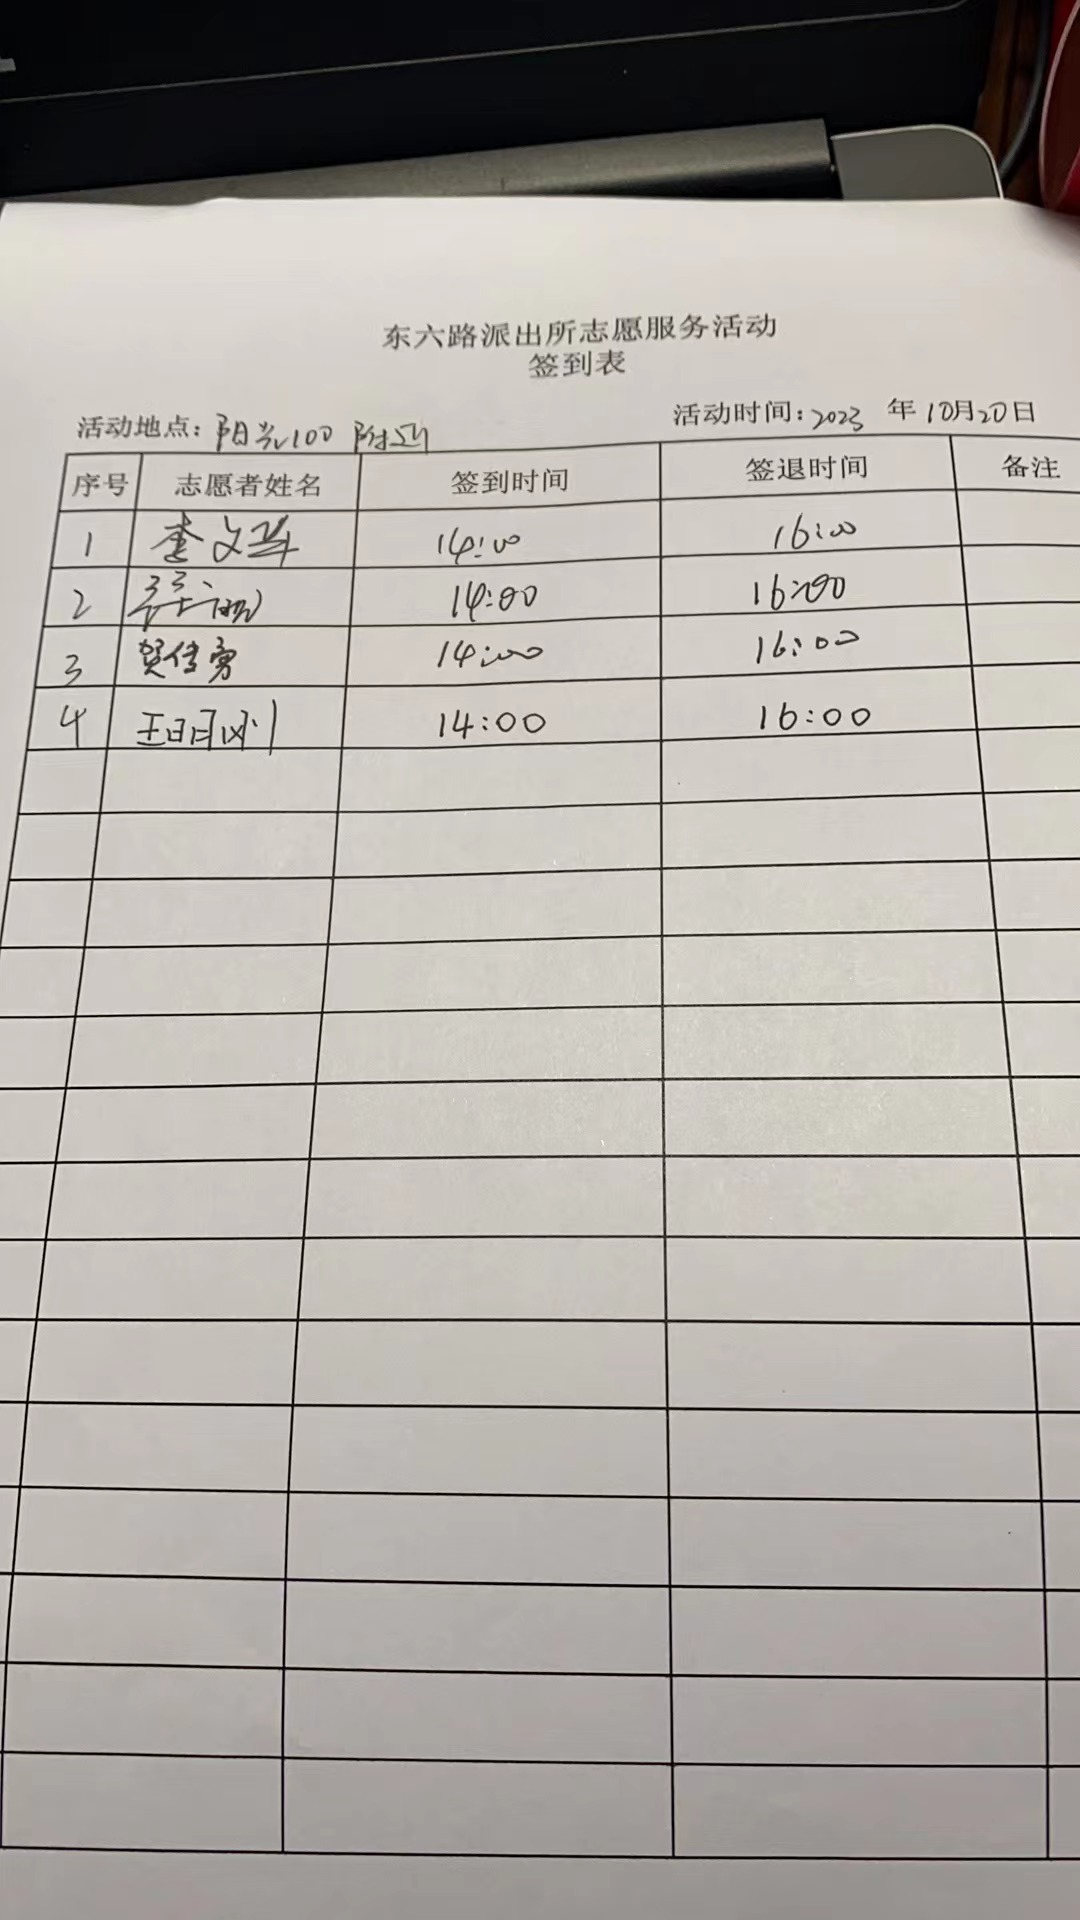 东六路派出所志愿服务活动
签到表
活动地点：阳光100 附近 活动时间：2023 年 10月20日
序号 志愿者姓名 签到时间 签退时间 备注
1 李文华 14:00 16:00
2 14:00 16:00
3 贺传勇 14:00 16:00
4 王明刚 14:00 16:00